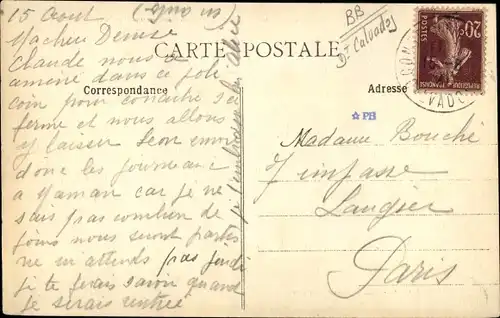 15 Aout
Ma chere Denise
Claude nous a
amené dans ce joli
coin pour connaitre sa
ferme et nous allons
y laisser Leon envoi
donc les journeaux
a Maman car je ne
sais pas combien de
jours nous serons partis
ne m'attends pas jeudi
je te ferais savoir quand
je serais rentrée
je t'embrasse
CARTE POSTALE
Correspondance
Adresse
BB
Dt Calvados
☆PB
20c
POSTES
REPUBLIQUE FRANÇAISE
Madame Bouché
7 impasse
Laugier
Paris